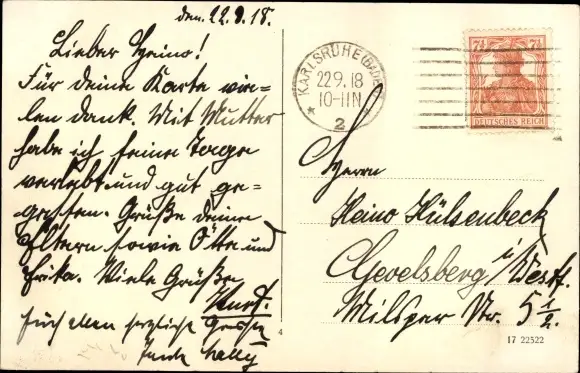 den 22.9.18.
Lieber Heino!
Für deine Karte vie-
len dank. Mit Mutter
habe ich feine Tage
verlebt und gut ge-
gessen. Grüße deine
Eltern sowie Otto und
Erika. Viele Grüße
Kurt.
Euch allen herzliche Grüße
Tante
KARLSRUHE (BADEN)
22.9.18
10-11N
* 2
7½ 7½
DEUTSCHES REICH
Herrn
Heino Hülsenbeck
Gevelsberg i/Westf.
Milsper Str. 5 1/2.
4
17 22522